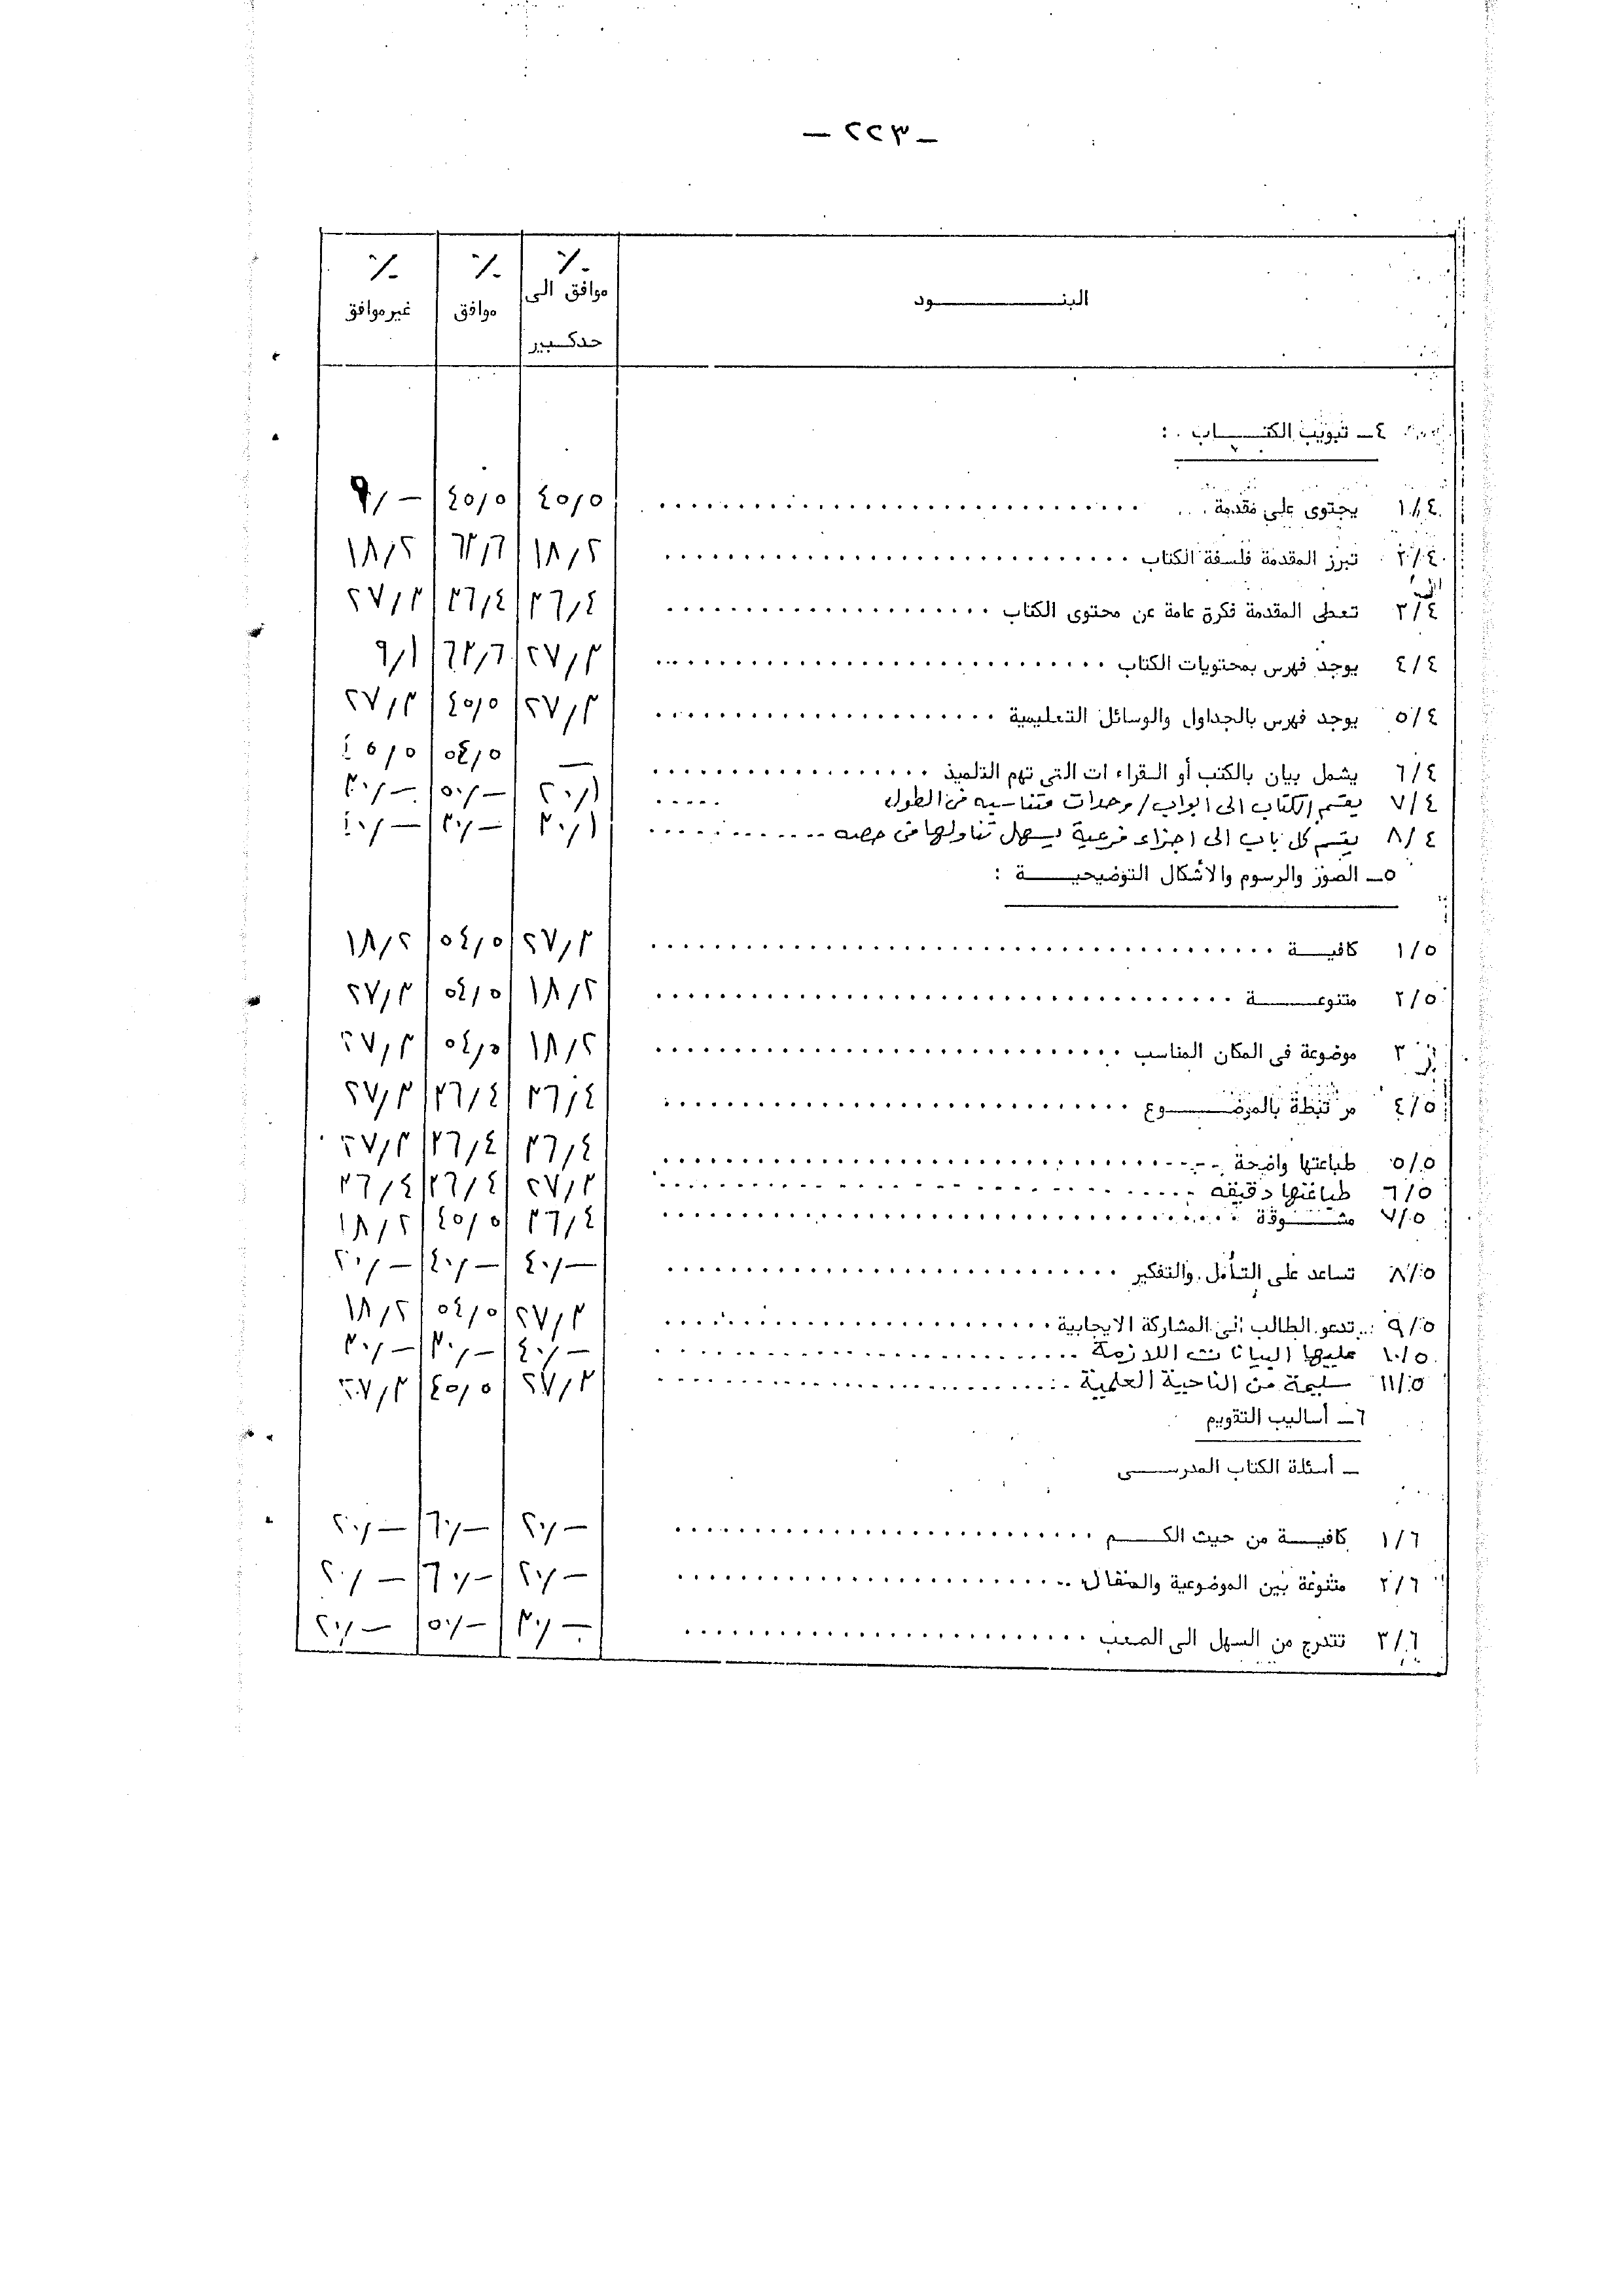 - ٢٢٣ -
البنــــــــود ٪ موافق الى حدكبير ٪ موافق ٪ غير موافق
٤ــ تبويب الكتـــاب :
١/٤ يحتوى على مقدمة ٤٥٫٥ ٤٥٫٥ ٩٫ــ
٢/٤ تبرز المقدمة فلسفة الكتاب ١٨٫٢ ٦٣٫٦ ١٨٫٢
٣/٤ تعطى المقدمة فكرة عامة عن محتوى الكتاب ٣٦٫٤ ٣٦٫٤ ٢٧٫٣
٤/٤ يوجد فهرس بمحتويات الكتاب ٢٧٫٣ ٦٣٫٦ ٩٫١
٥/٤ يوجد فهرس بالجداول والوسائل التعليمية ٢٧٫٣ ٤٥٫٥ ٢٧٫٣
٦/٤ يشمل بيان بالكتب أو القراء ات التى تهم التلميذ ــ ٥٤٫٥ ٤٥٫٥
٧/٤ يقسم الكتاب الى ابواب / وحدات متناسبه فى الطول ٢٠٫ ٥٠٫ــ ٣٠٫ــ
٨/٤ يقسم كل باب الى اجزاء فرعية يسهل تناولها فى حصه ٣٠٫ ٣٠٫ــ ٤٠٫ــ
٥ــ الصور والرسوم والأشكال التوضيحيـــة :
١/٥ كافيــة ٢٧٫٣ ٥٤٫٥ ١٨٫٢
٢/٥ متنوعــة ١٨٫٢ ٥٤٫٥ ٢٧٫٣
٣ موضوعة فى المكان المناسب ١٨٫٢ ٥٤٫٥ ٢٧٫٣
٤/٥ مرتبطة بالموضـــوع ٣٦٫٤ ٣٦٫٤ ٢٧٫٣
٥/٥ طباعتها واضحة ٣٦٫٤ ٣٦٫٤ ٢٧٫٣
٦/٥ طباعتها دقيقه ٢٧٫٣ ٣٦٫٤ ٣٦٫٤
٧/٥ مشـــوقة ٣٦٫٤ ٤٥٫٥ ١٨٫٢
٨/٥ تساعد على التأمل والتفكير ٤٠٫ــ ٤٠٫ــ ٢٠٫ــ
٩/٥ تدعو الطالب الى المشاركة الايجابية ٢٧٫٣ ٥٤٫٥ ١٨٫٢
١٠/٥ عليها البيانات اللازمة ٤٠٫ــ ٣٠٫ــ ٣٠٫ــ
١١/٥ سليمة من الناحية العلمية ٢٧٫٣ ٤٥٫٥ ٢٧٫٣
٦ــ أساليب التقويم
ــ أسئلة الكتاب المدرســـى
١/٦ كافيــة من حيث الكـــم ٢٠٫ــ ٦٠٫ــ ٢٠٫ــ
٢/٦ متنوعة بين الموضوعية والمقال ٢٠٫ــ ٦٠٫ــ ٢٠٫ــ
٣/٦ تتدرج من السهل الى الصعب ٣٠٫ــ ٥٠٫ــ ٢٠٫ــ